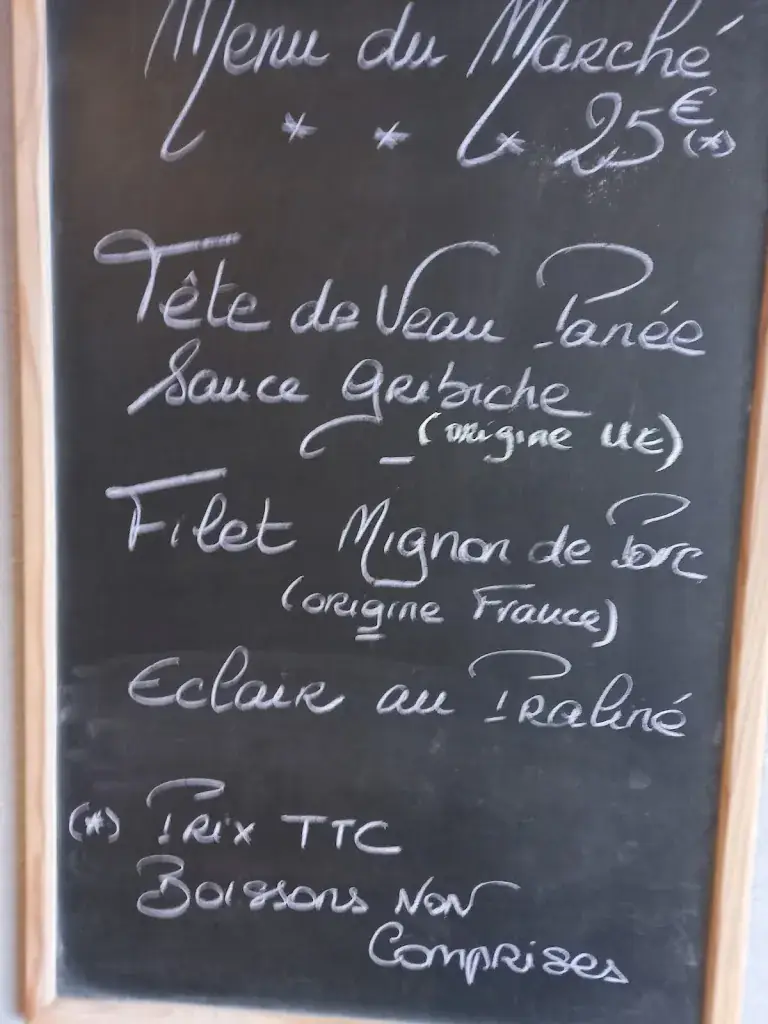 Menu du Marché
* * * 25€ (*)
Tête de Veau Panée
Sauce Gribiche
(origine UE)
Filet Mignon de Porc
(origine France)
Eclair au Praliné
(*) Prix TTC
Boissons Non
Comprises